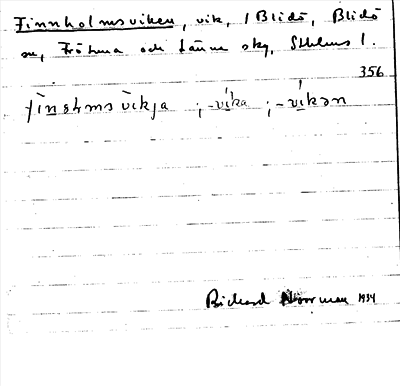 Finnholmsviken, vik, 1 Blidö, Blidö
sn, Frötuna och Länna skg, Sthlms l.
356
fìnɷlms vìkja ; -víka ; -víkən
Richard Norrman 1934